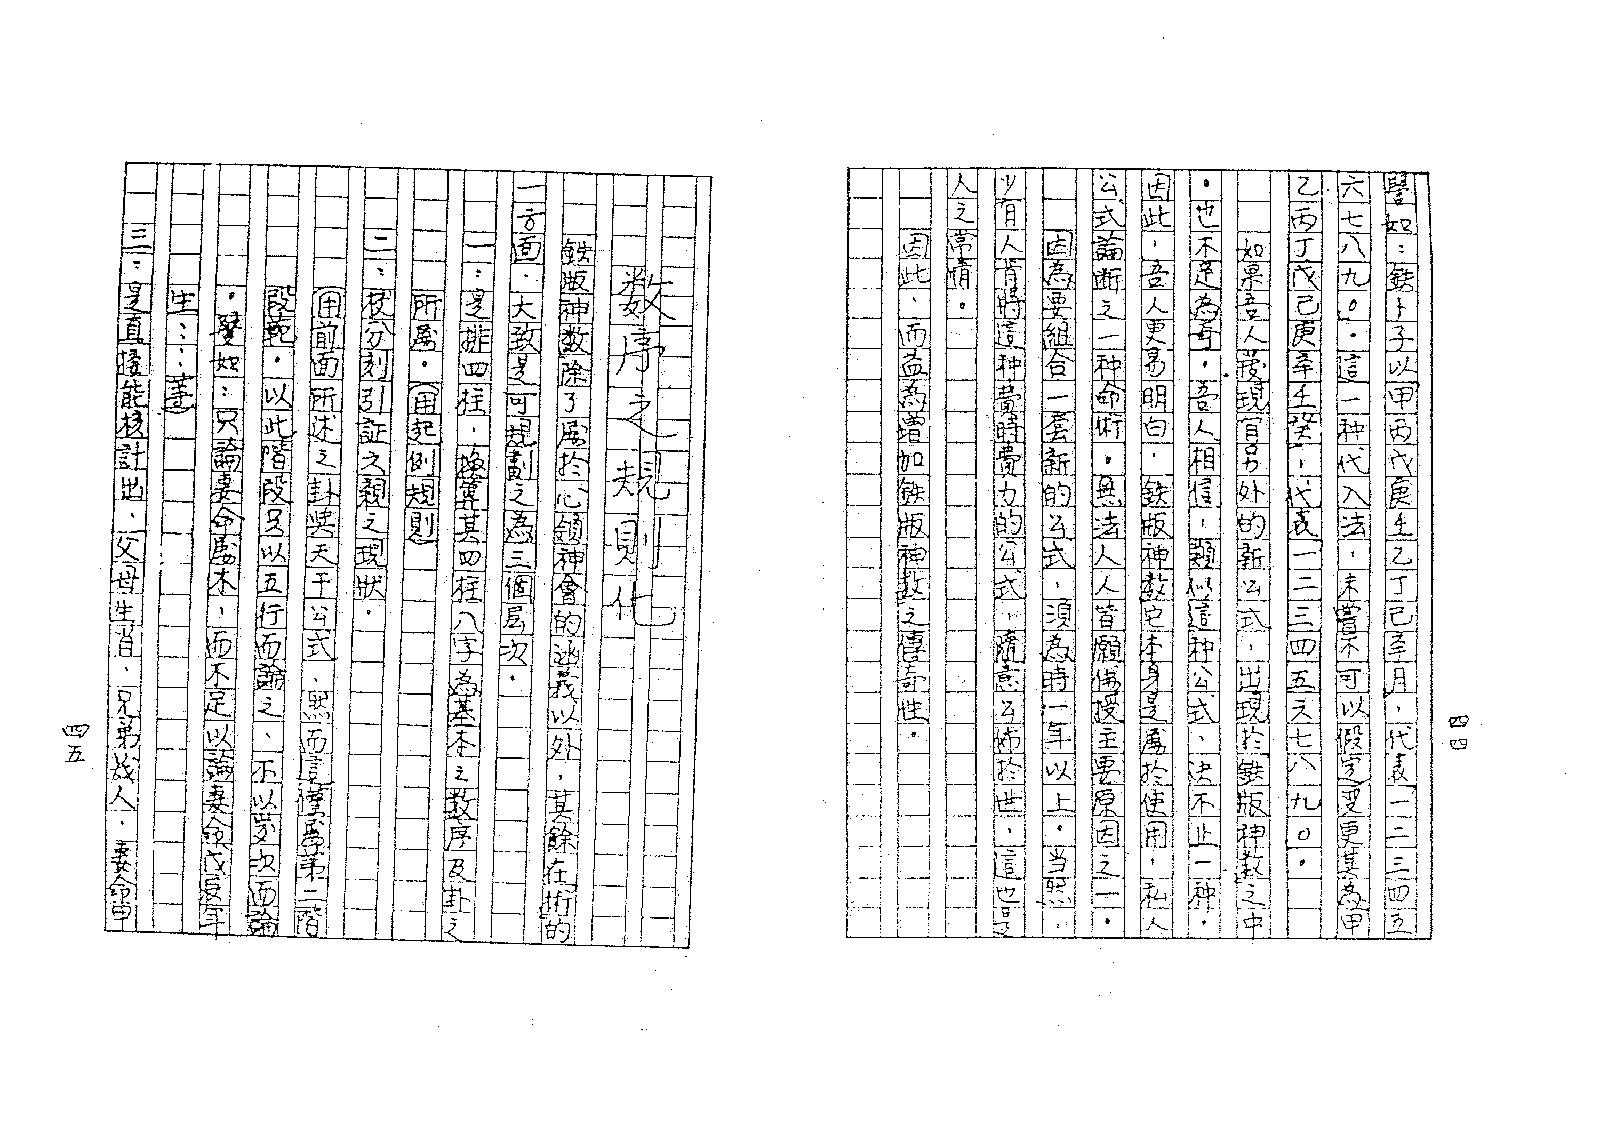 譬如：鉄卜子以甲丙戊庚壬乙丁己辛月，代表一二三四五
六七八九○。這一种代入法，未嘗不可以假定变更其為甲
乙丙丁戊己庚辛壬癸，代表一二三四五六七八九○。
如果吾人發現有另外的新公式，出現於鉄版神数之中
，也不足為奇，吾人相信，類似這种公式、決不止一种。
因此，吾人更易明白，鉄版神数它本身是屬於使用，私人
公式論断之一种命術，無法人人皆願備授主要原因之一。
因為要組合一套新的公式，須為時一年以上。当然，
少有人肯將這种費時費力的公式，隨意公佈於世，這也是
人之常情。
因此，而益為增加鉄版神数之傳奇性。
四四
数序之規則化
鉄版神数除了屬於心領神會的涵義以外，其餘在術的
一方面，大致是可規劃之為三個层次。
一：是排四柱，換算其四柱八字為基本之数序及卦之
所屬。（用起例規則）
二：校分刻引証之親之現狀。
（用前面所述之卦與天干公式，然而這僅屬第二階
段範。以此階段只以五行而論之、不以歲次而論
。譬如：只論妻命屬木，而不足以論妻命戊辰年
生：：等）
三：是直接能核計出、父母生肖、兄弟幾人，妻命申
四五